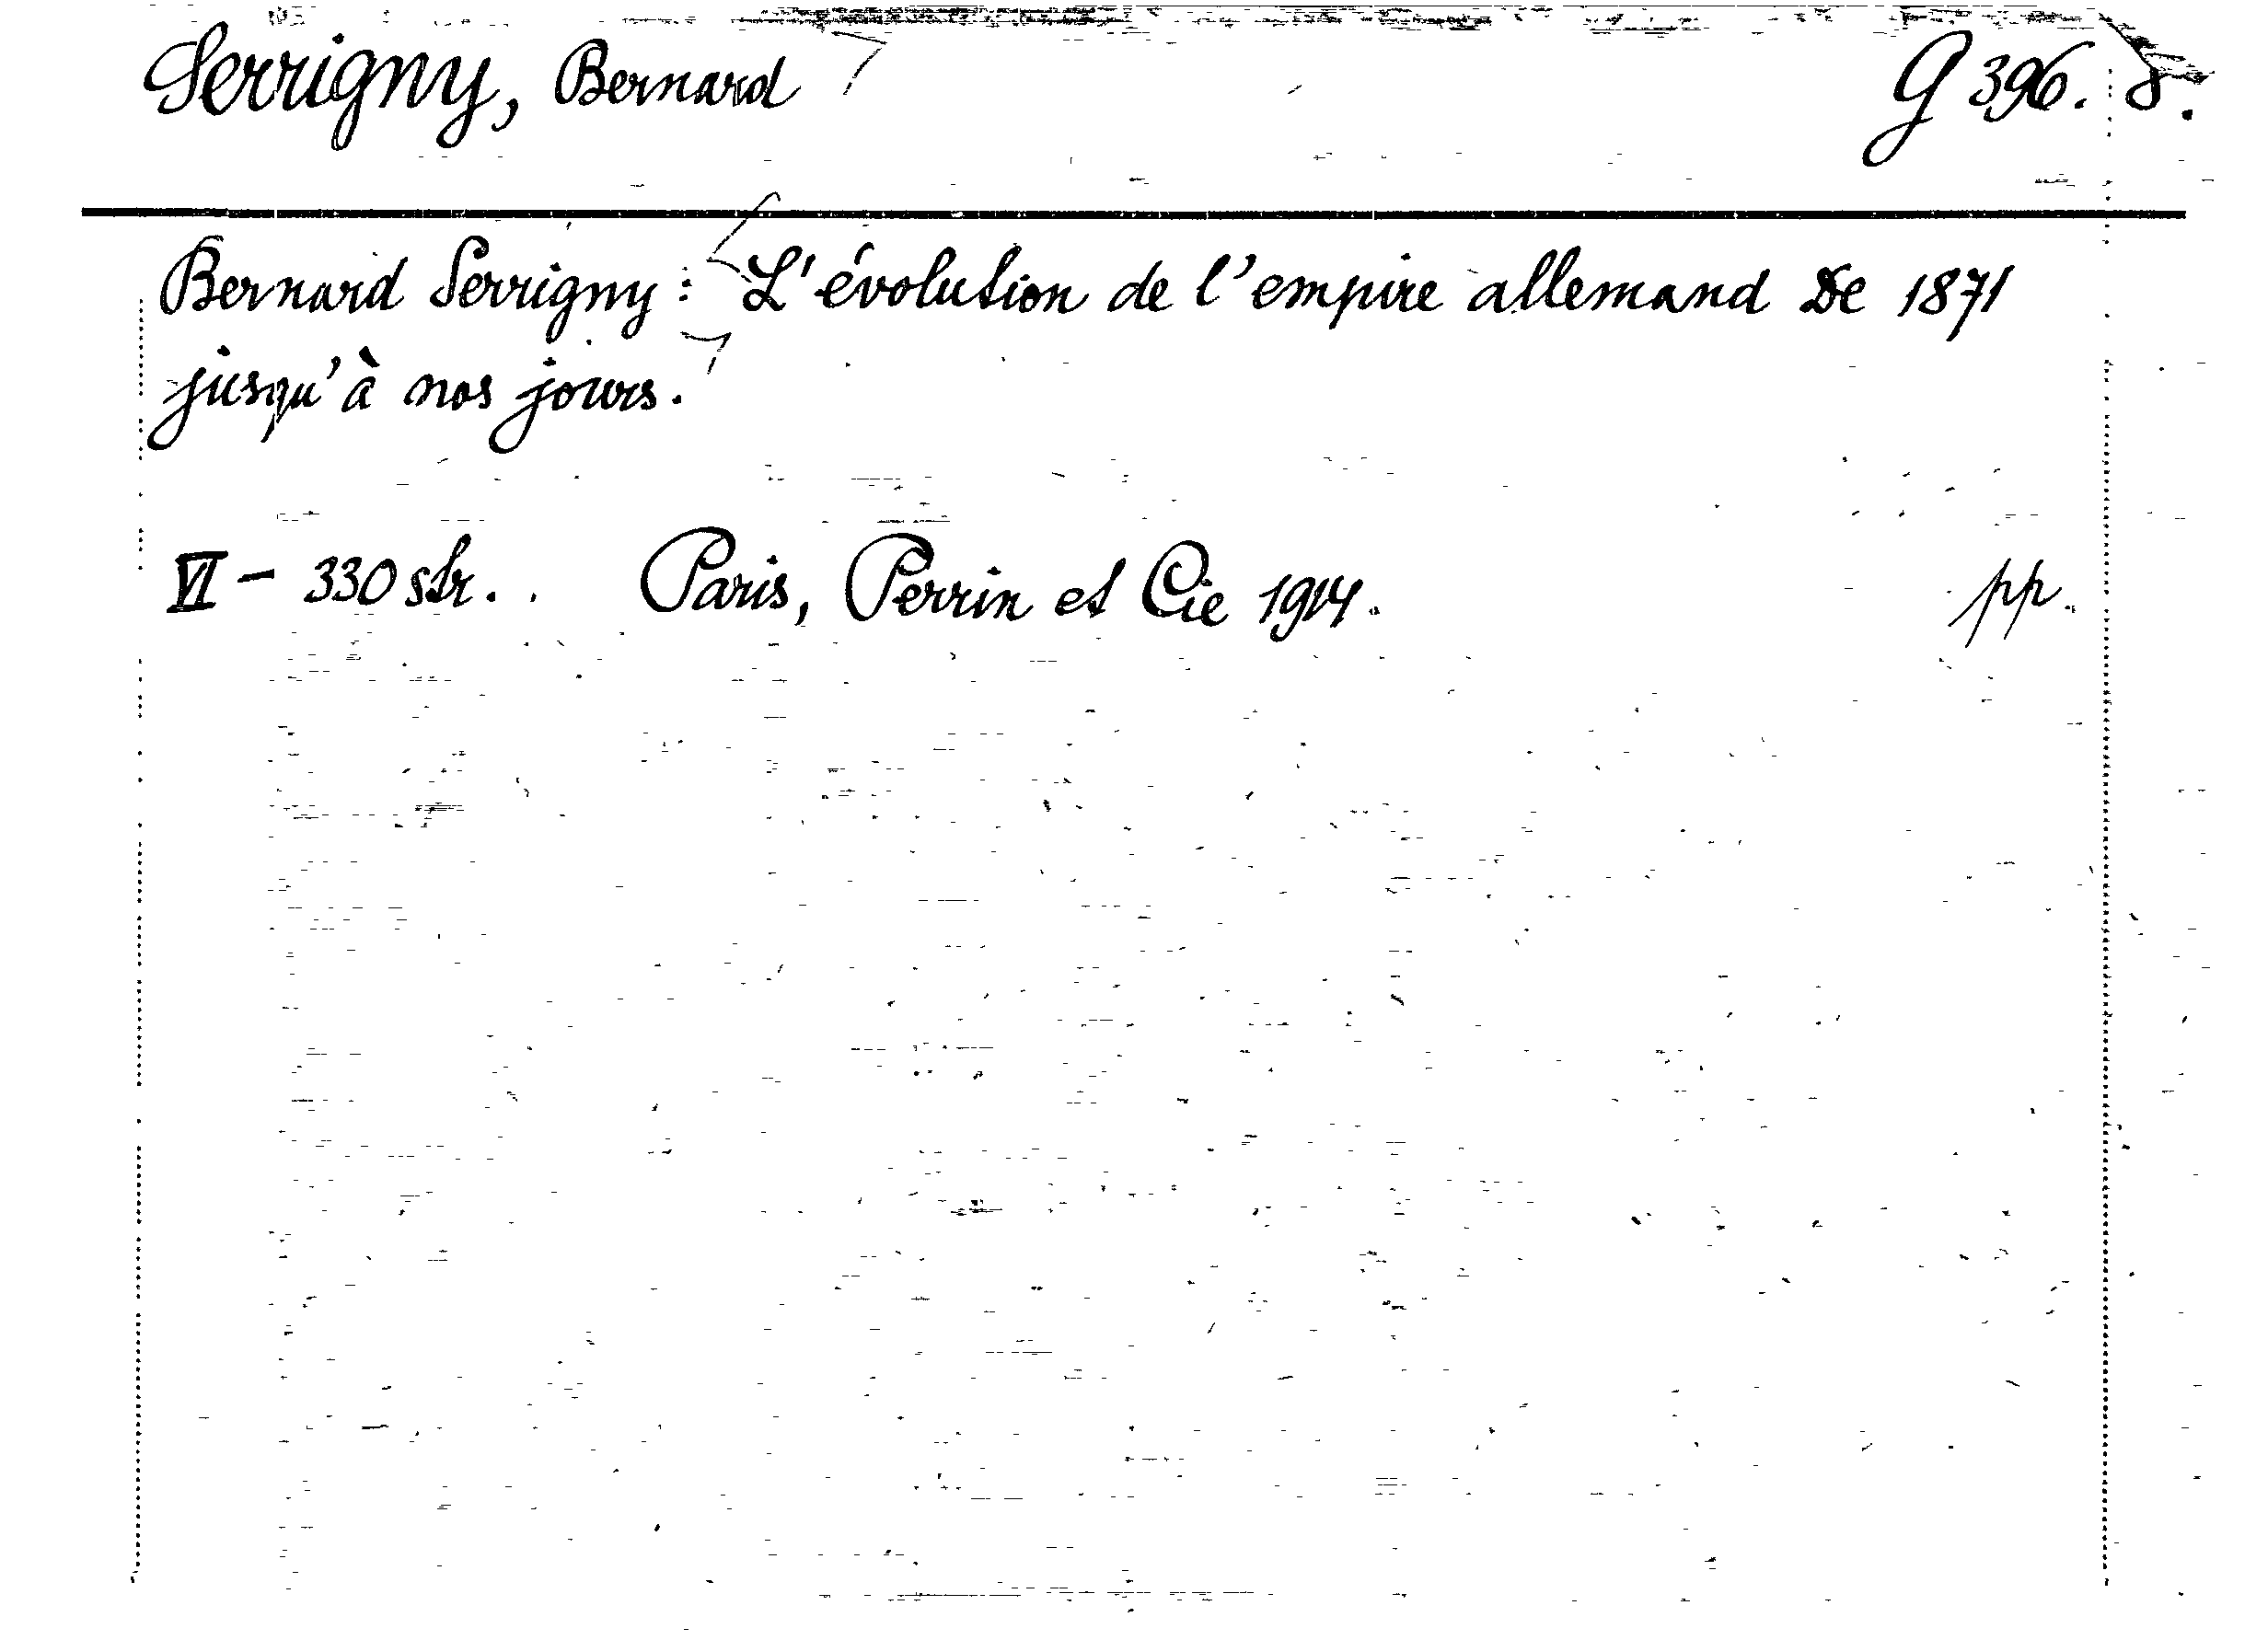 Serrigny, Bernard G 396. 8.
Bernard Serrigny: L'évolution de l'empire allemand De 1871
jusqu'à nos jours.
VI - 330 str. . Paris, Perrin et Cie 1914. pp.